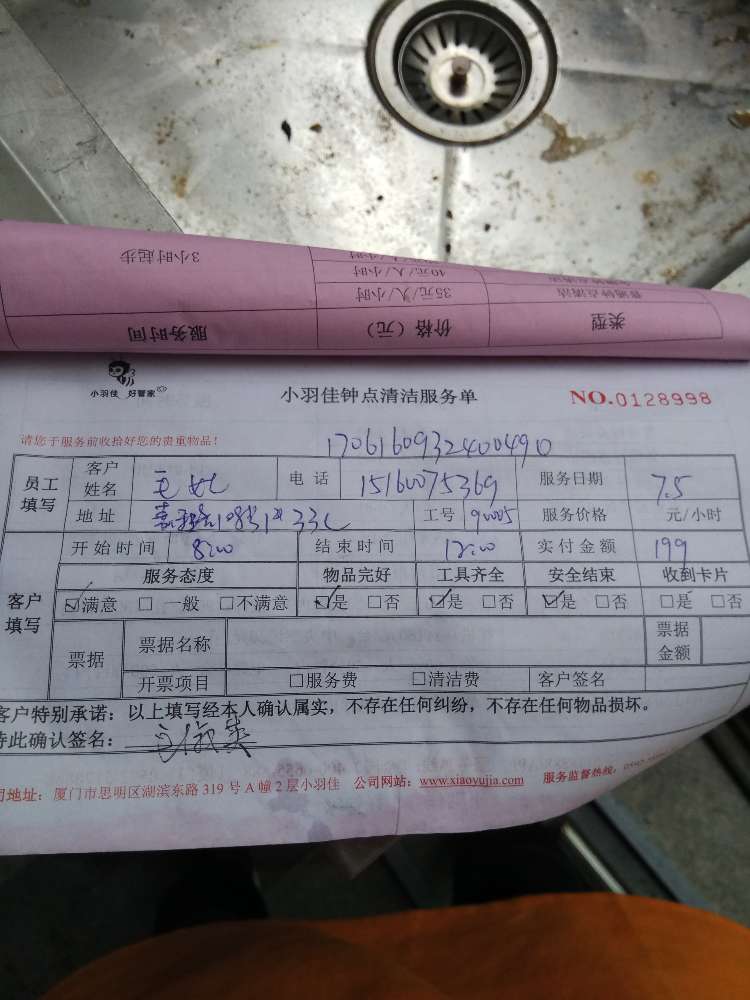 3小时起步 10元/人/小时
普通钟点清洁 35元/人/小时
类型 价格（元） 服务时间
小羽佳 好管家
小羽佳钟点清洁服务单
NO.0128998
请您于服务前收拾好您的贵重物品！
1706160932400490
员工填写 客户姓名 电话 15160075369 服务日期 7.5
地址 33C 工号 90005 服务价格 元/小时
开始时间 8:00 结束时间 12:00 实付金额 199
服务态度 物品完好 工具齐全 安全结束 收到卡片
客户填写 ☑满意 □一般 □不满意 ☑是 □否 ☑是 □否 ☑是 □否 □是 □否
票据 票据名称 票据金额
开票项目 □服务费 □清洁费 客户签名
客户特别承诺：以上填写经本人确认属实，不存在任何纠纷，不存在任何物品损坏。
特此确认签名：
司地址：厦门市思明区湖滨东路 319 号 A 幢 2 层小羽佳 公司网站：www.xiaoyujia.com 服务监督热线：